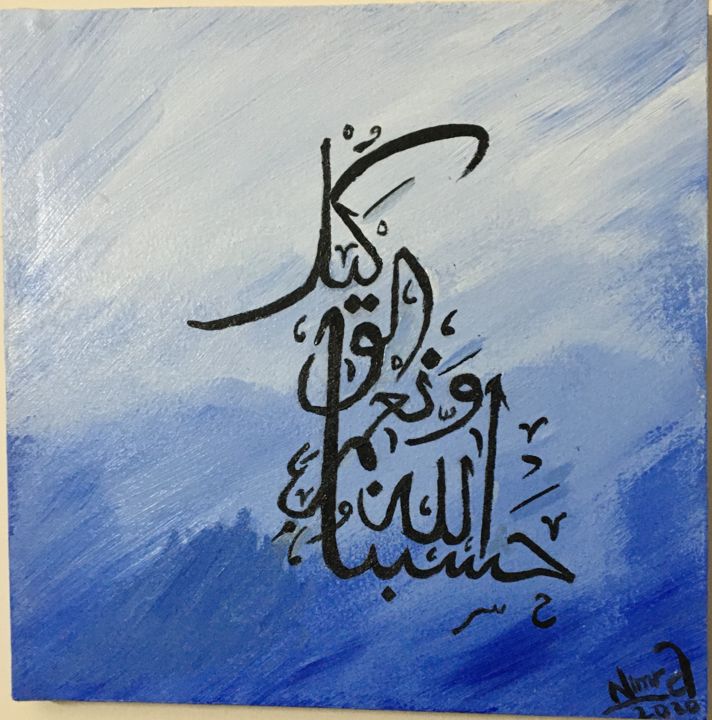 حسبنا الله
ونعم
الوكيل
Nimra
2020